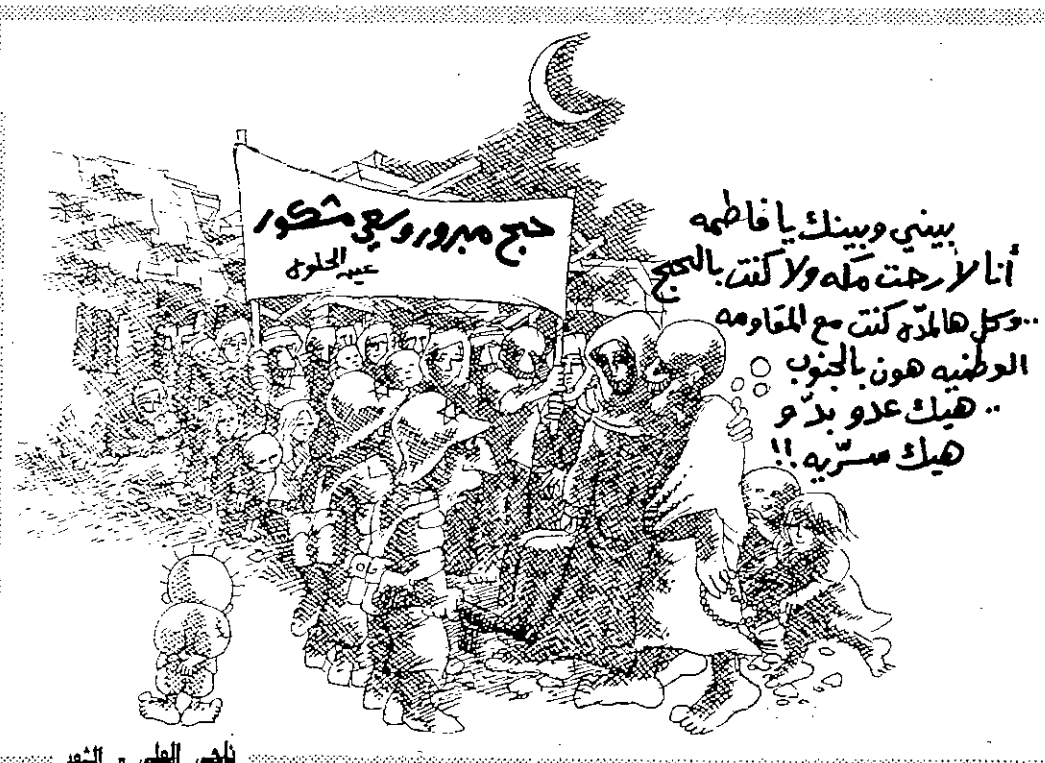 حج مبرور وسعي مشكور
عين الحلوه
بيني وبينك يا فاطمه
أنا لا رحت مكه ولا كنت بالحج
..وكل هالمدّه كنت مع المقاومه
الوطنيه هون بالجنوب
.. هيك عدو بدّو
هيك سرّيه!!
ناجي العلي -